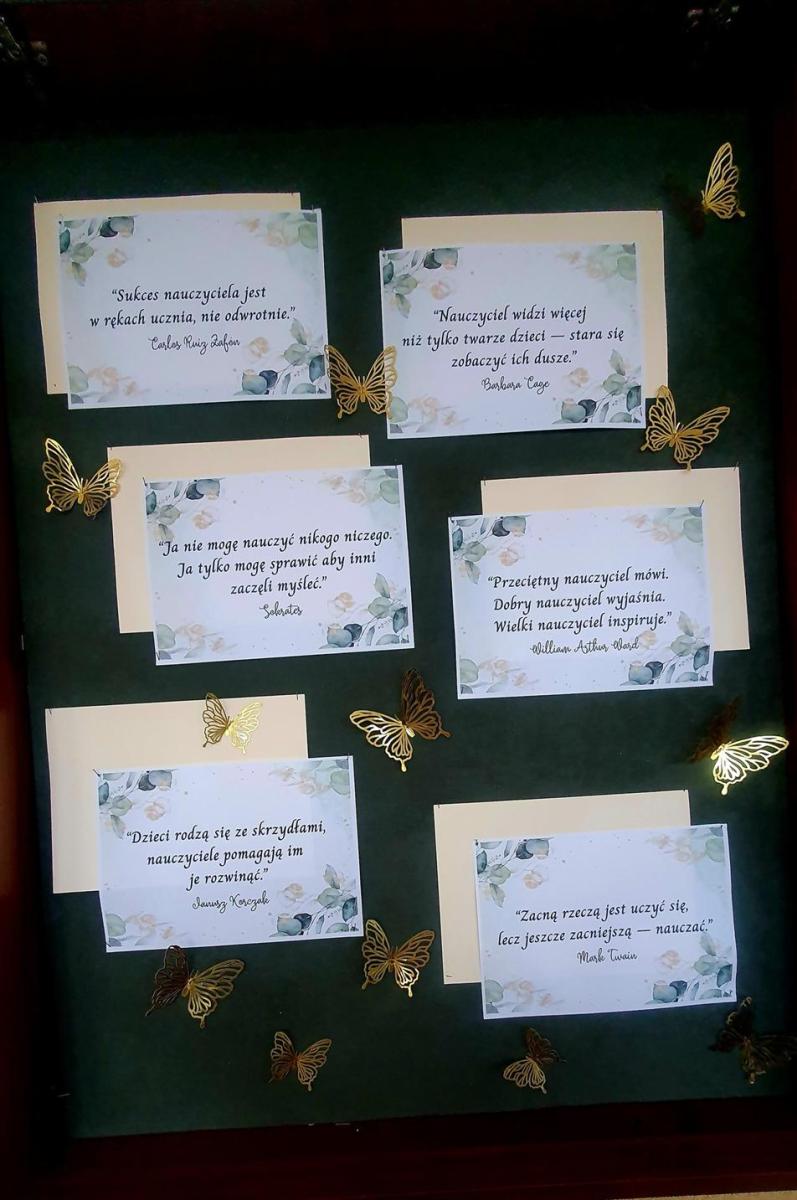 “Sukces nauczyciela jest
w rękach ucznia, nie odwrotnie.”
Carlos Ruiz Zafón
“Nauczyciel widzi więcej
niż tylko twarze dzieci — stara się
zobaczyć ich dusze.”
Barbara Cage
“Ja nie mogę nauczyć nikogo niczego.
Ja tylko mogę sprawić aby inni
zaczęli myśleć.”
Sokrates
“Przeciętny nauczyciel mówi.
Dobry nauczyciel wyjaśnia.
Wielki nauczyciel inspiruje.”
William Arthur Ward
“Dzieci rodzą się ze skrzydłami,
nauczyciele pomagają im
je rozwinąć.”
Janusz Korczak
“Zacną rzeczą jest uczyć się,
lecz jeszcze zacniejszą — nauczać.”
Mark Twain